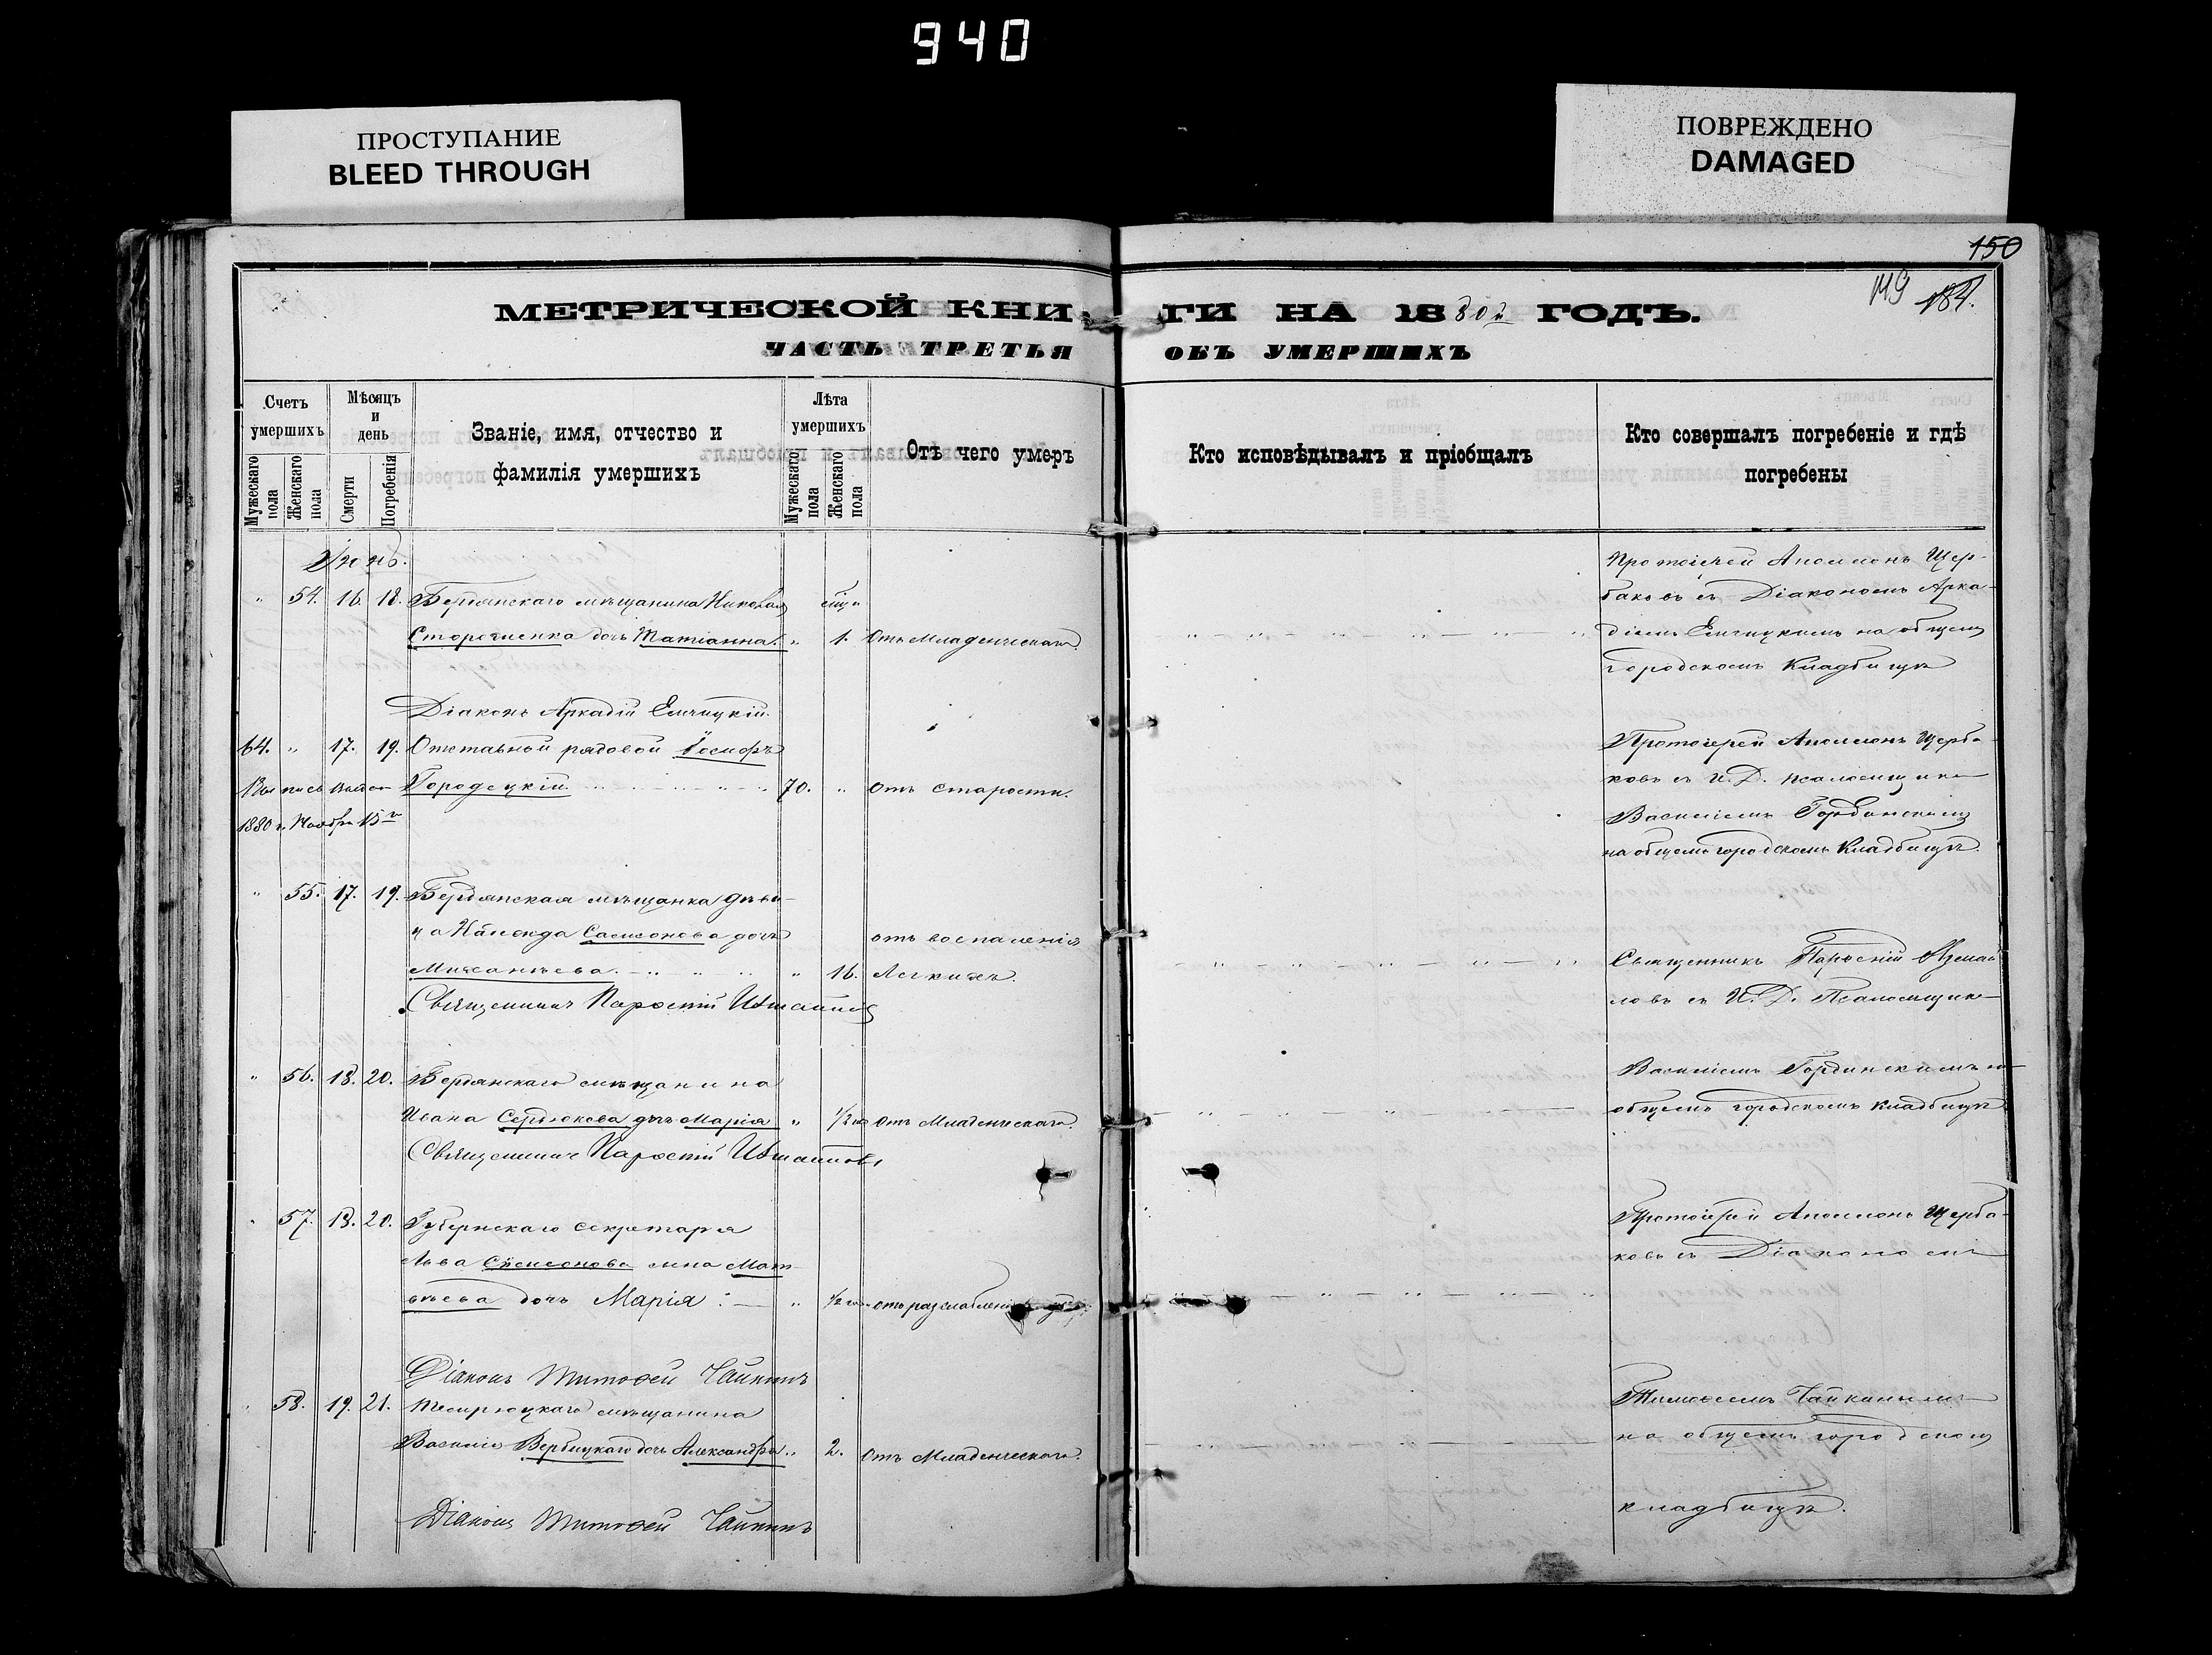 940
ПРОСТУПАНИЕ
BLEED THROUGH
ПОВРЕЖДЕНО
DAMAGED
150
149 184.
МЕТРИЧЕСКОЙ КНИ- ГИ НА 1880 ГОДЪ.
ЧАСТЬ ТРЕТЬЯ ОБЪ УМЕРШИХЪ
Счетъ умершихъ
Мужескаго пола
Женскаго пола
Мѣсяцъ и день
Смерти
Погребенія
Званіе, имя, отчество и
фамилія умершихъ
Лѣта умершихъ
Мужескаго пола
Женскаго пола
Отъ чего умеръ
Кто исповѣдывалъ и пріобщалъ
Кто совершалъ погребеніе и гдѣ
погребены
" 54. 16. 18. Бердянскаго мѣщанина Николая
дочь Татіанна. " 1. Отъ Младенческаго.
Протоіерей Аполлонъ Щер-
баковъ съ Діакономъ Арка-
діемъ на общемъ
городскомъ Кладбищѣ
Діаконъ Аркадій
64. " 17. 19. Отставной рядовой Іосифъ
Городецкій. 70. " отъ старости.
1880 г. Ноября 15
Протоіерей Аполлонъ Щерба-
ковъ съ И. Д. псаломщика
Василіемъ
на общемъ городскомъ Кладбищѣ.
" 55. 17. 19. Бердянская мѣщанка дѣви-
ца Самсонова дочь
" 16. отъ воспаленія
Легкихъ.
Священникъ Измай-
ловъ съ И. Д. Псаломщика
Василіемъ
общемъ городскомъ кладбищѣ
Священникъ
" 56. 18. 20. Бердянскаго мѣщанина
Ивана Сердюкова дочь Марія " 1/2 отъ Младенческаго.
Священникъ
" 57. 18. 20. Губернскаго секретаря
Льва
дочь Марія " 1/2 отъ разслабленія
Протоіерей Аполлонъ Щерба-
ковъ съ Діакономъ
Тимофеемъ Чайкинымъ
на общемъ городскомъ
кладбищѣ.
Діаконъ Тимофей Чайкинъ
" 58. 19. 21. Темрюцкаго мѣщанина
Василія Вербицкаго дочь Александра. " 2. Отъ Младенческаго.
Діаконъ Тимофей Чайкинъ